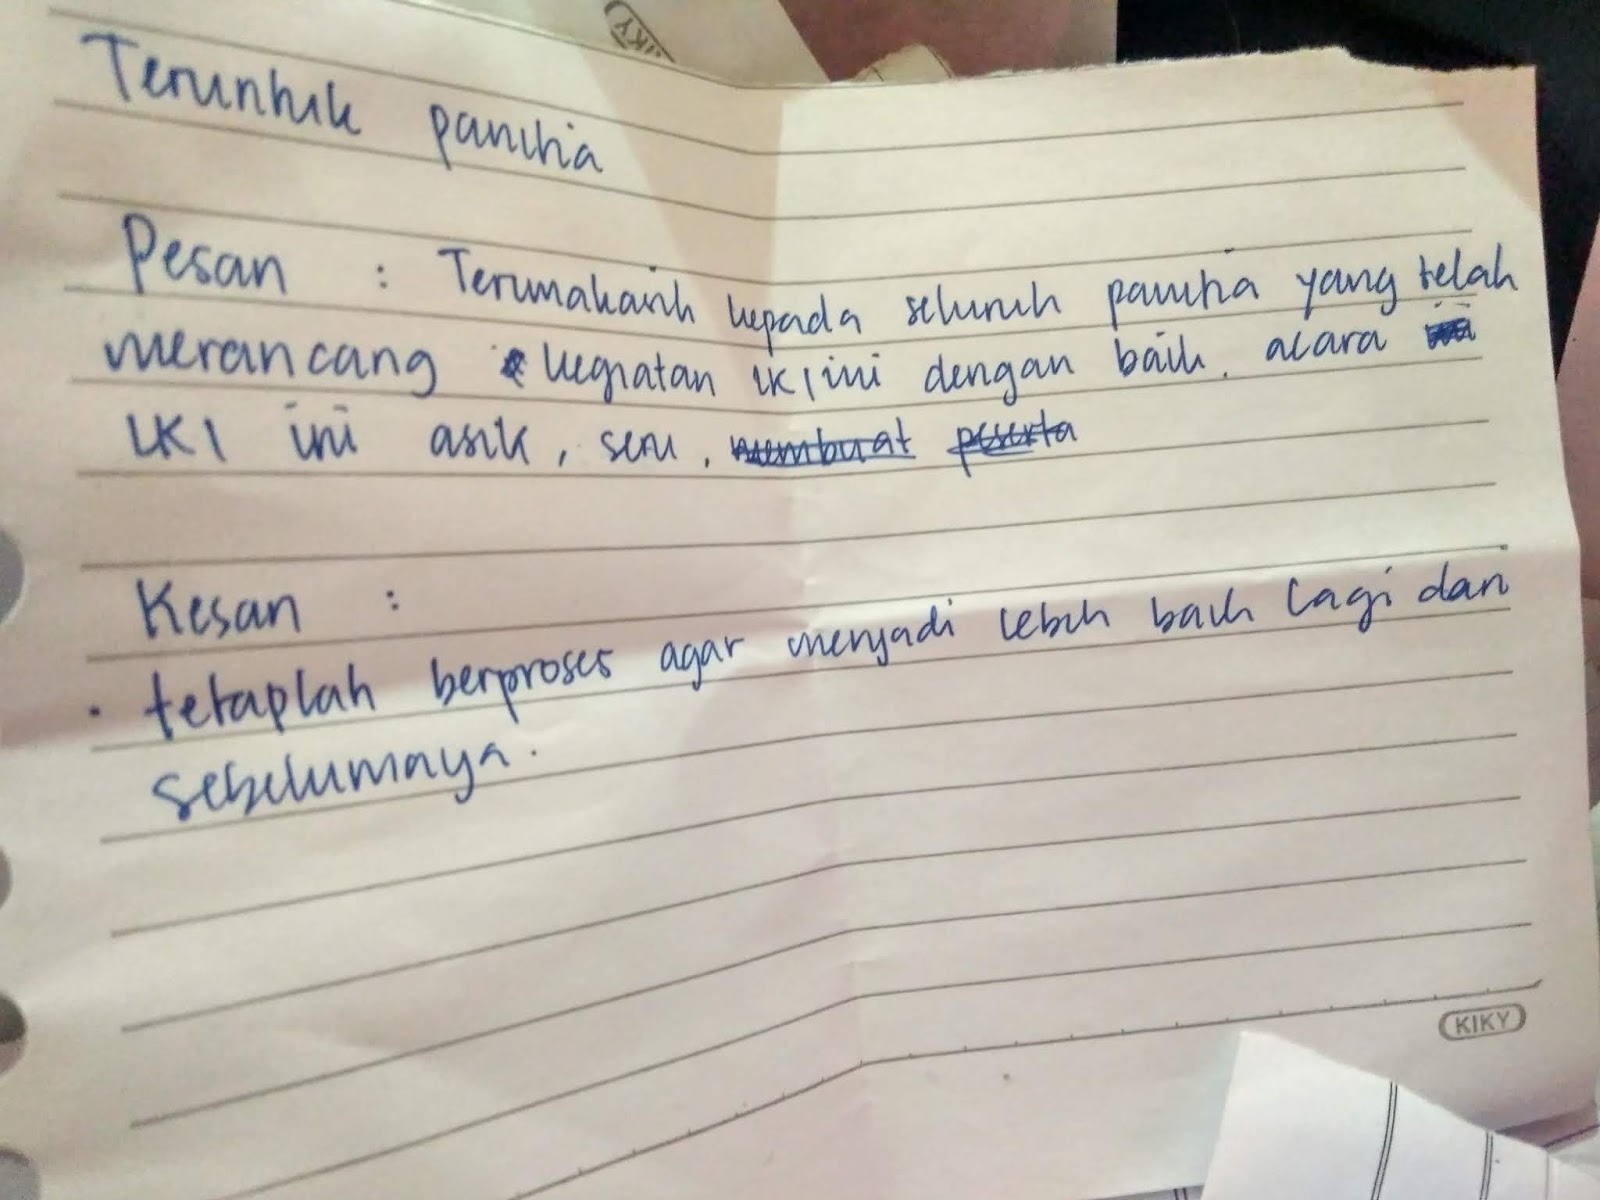 KIKY
Teruntuk panitia
Pesan : Terimakasih kepada seluruh panitia yang telah
merancang kegiatan LK1 ini dengan baik. acara
LK1 ini asik, seru, membuat peserta
Kesan :
• tetaplah berproses agar menjadi lebih baik lagi dari
sebelumnaya.
KIKY